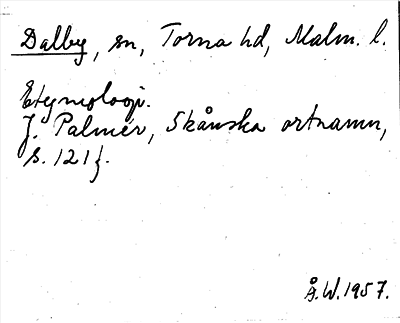 Dalby, sn, Torna hd, Malm. l.
Etymologi.
J. Palmér, Skånska ortnamn,
s. 121f.
Å.W. 1957.